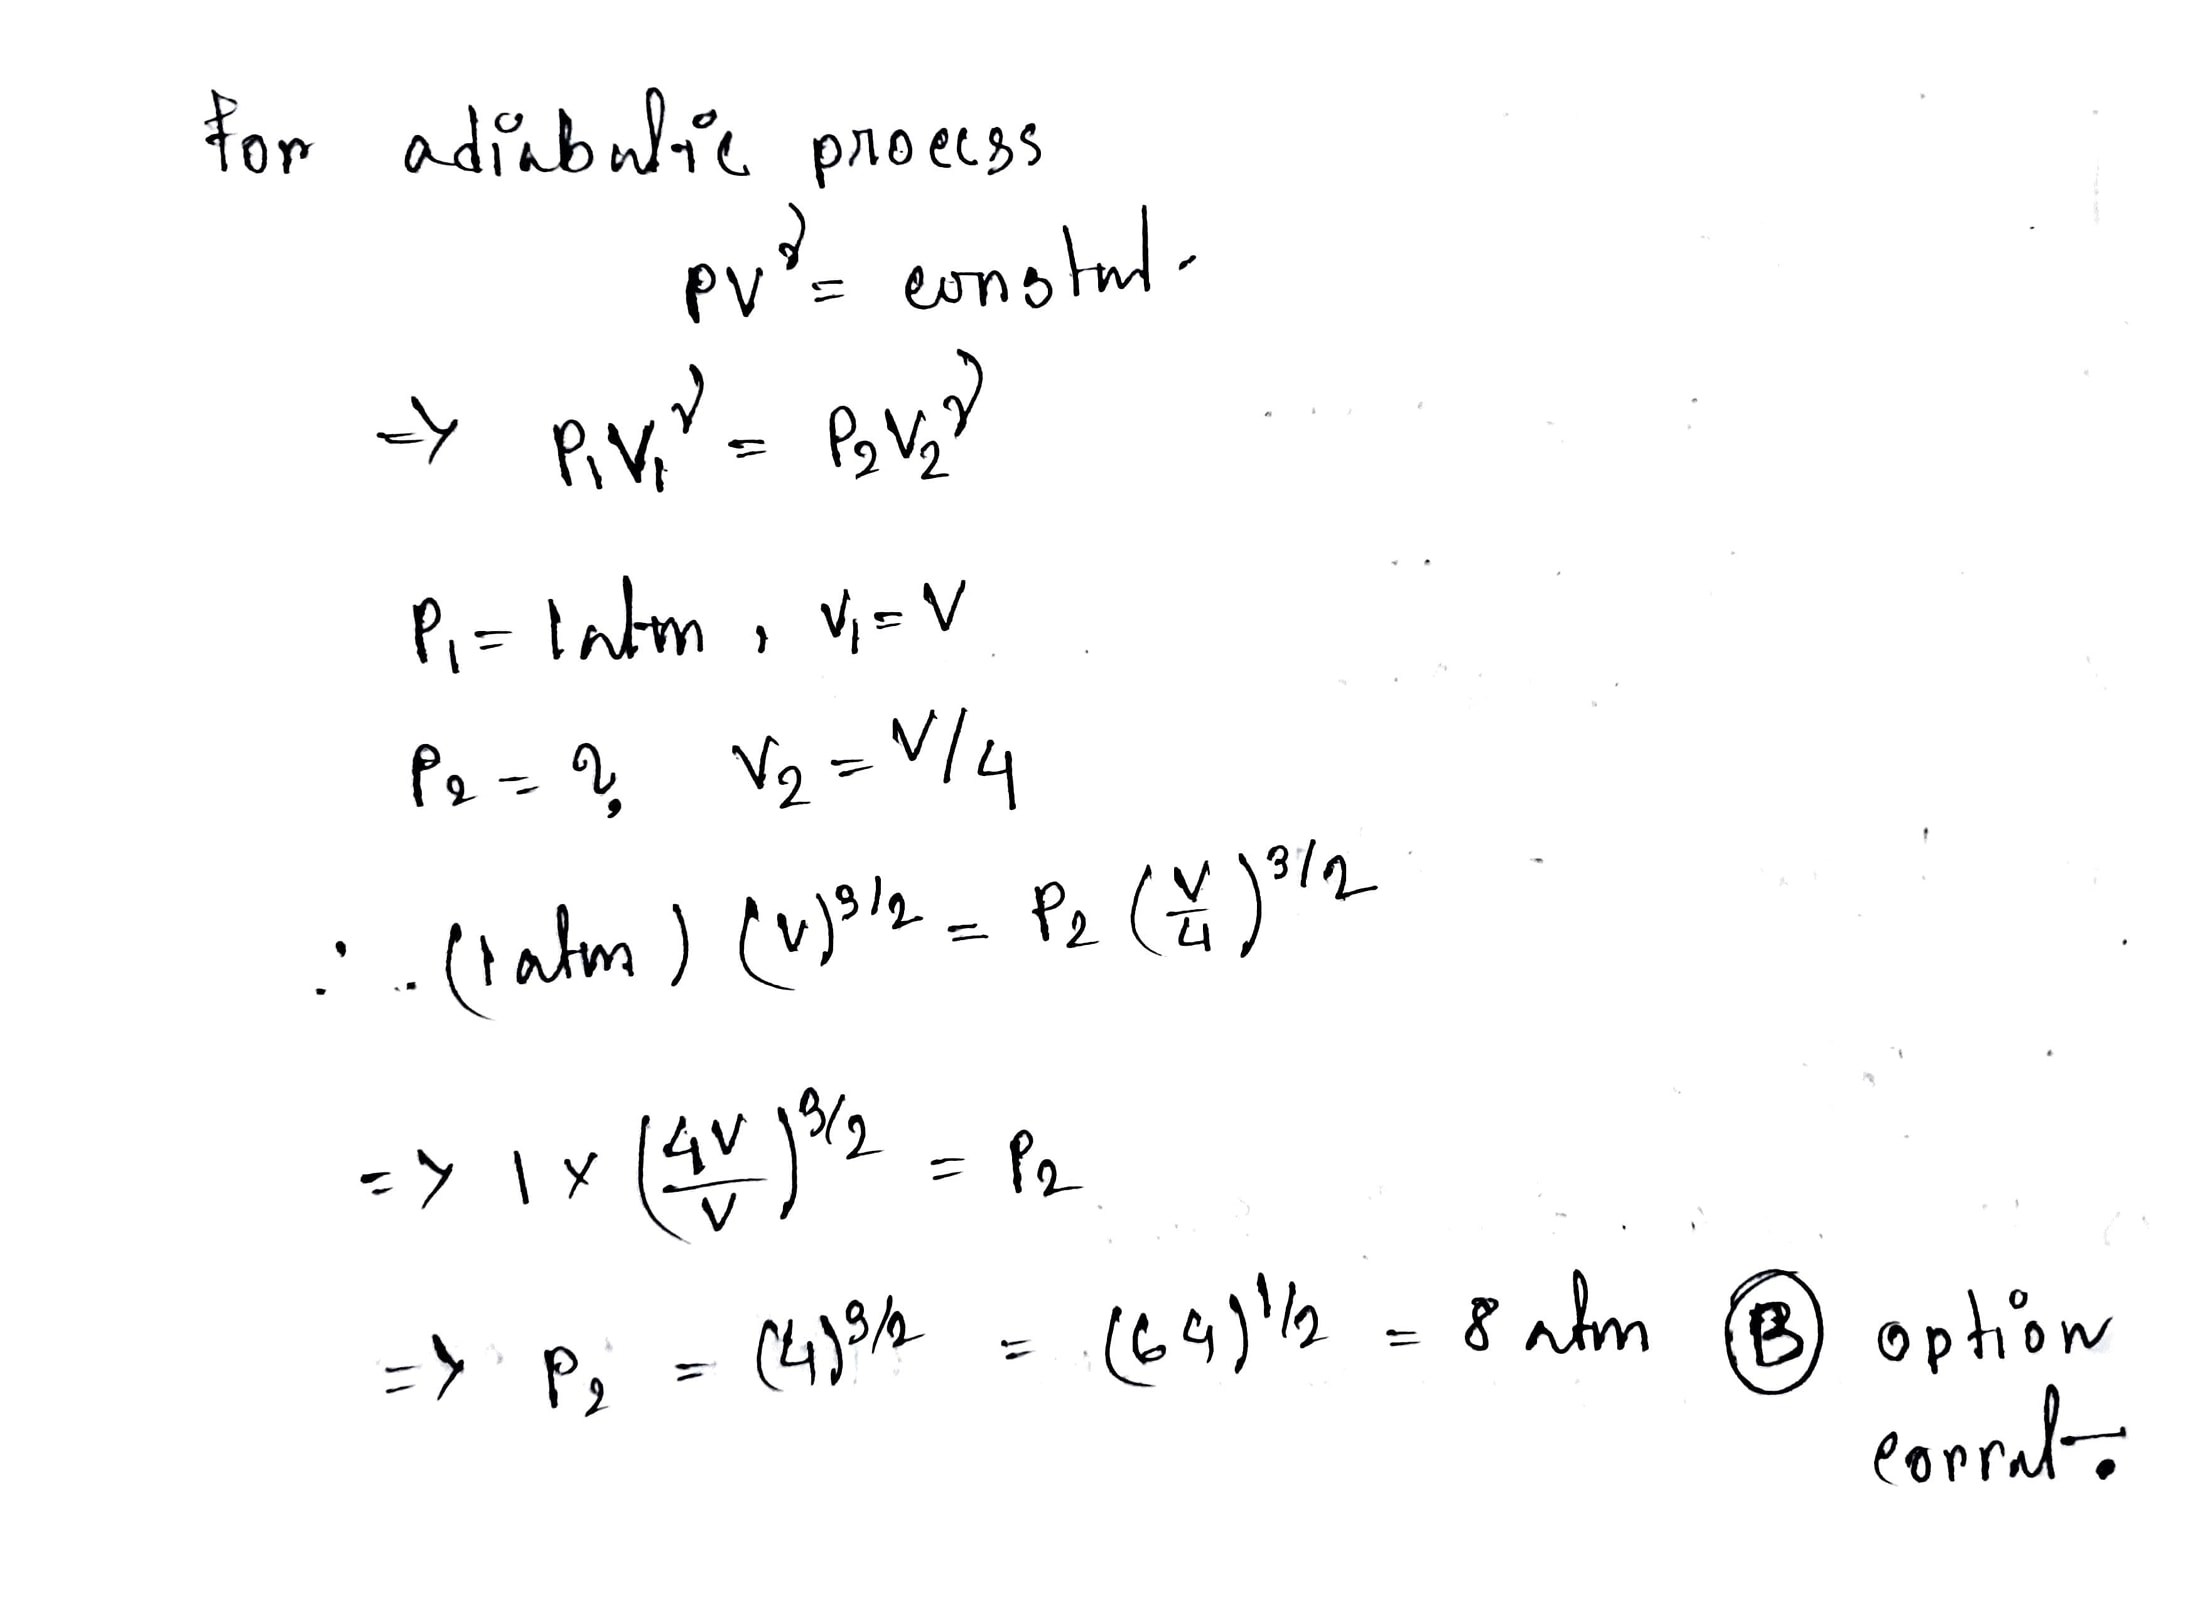 For adiabatic process
PV^γ = constant.
=> P₁V₁^γ = P₂V₂^γ
P₁ = 1atm , V₁ = V
P₂ = ?, V₂ = V/4
∴ (1atm) (V)^3/2 = P₂ (V/4)^3/2
=> 1 × (4V/V)^3/2 = P₂
=> P₂ = (4)^3/2 = (64)^1/2 = 8 atm Ⓑ option
correct.